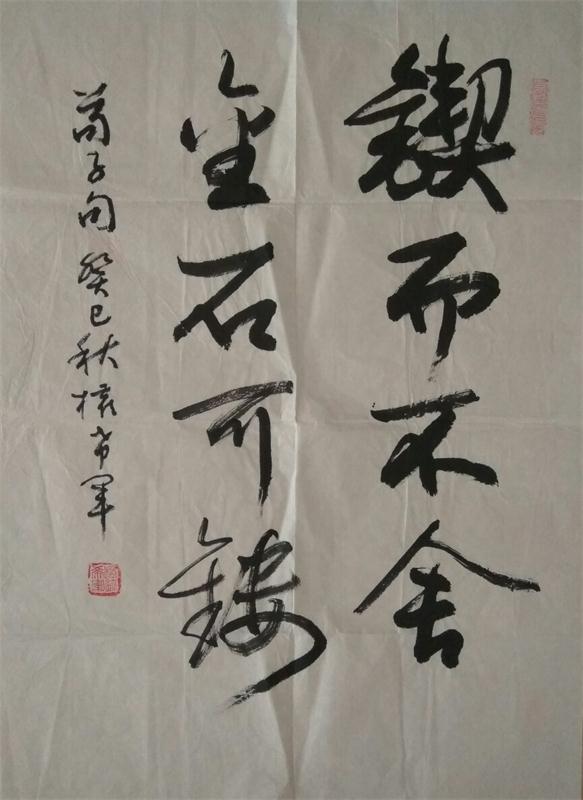 锲而不舍
金石可镂
荀子句 癸巳秋 希军